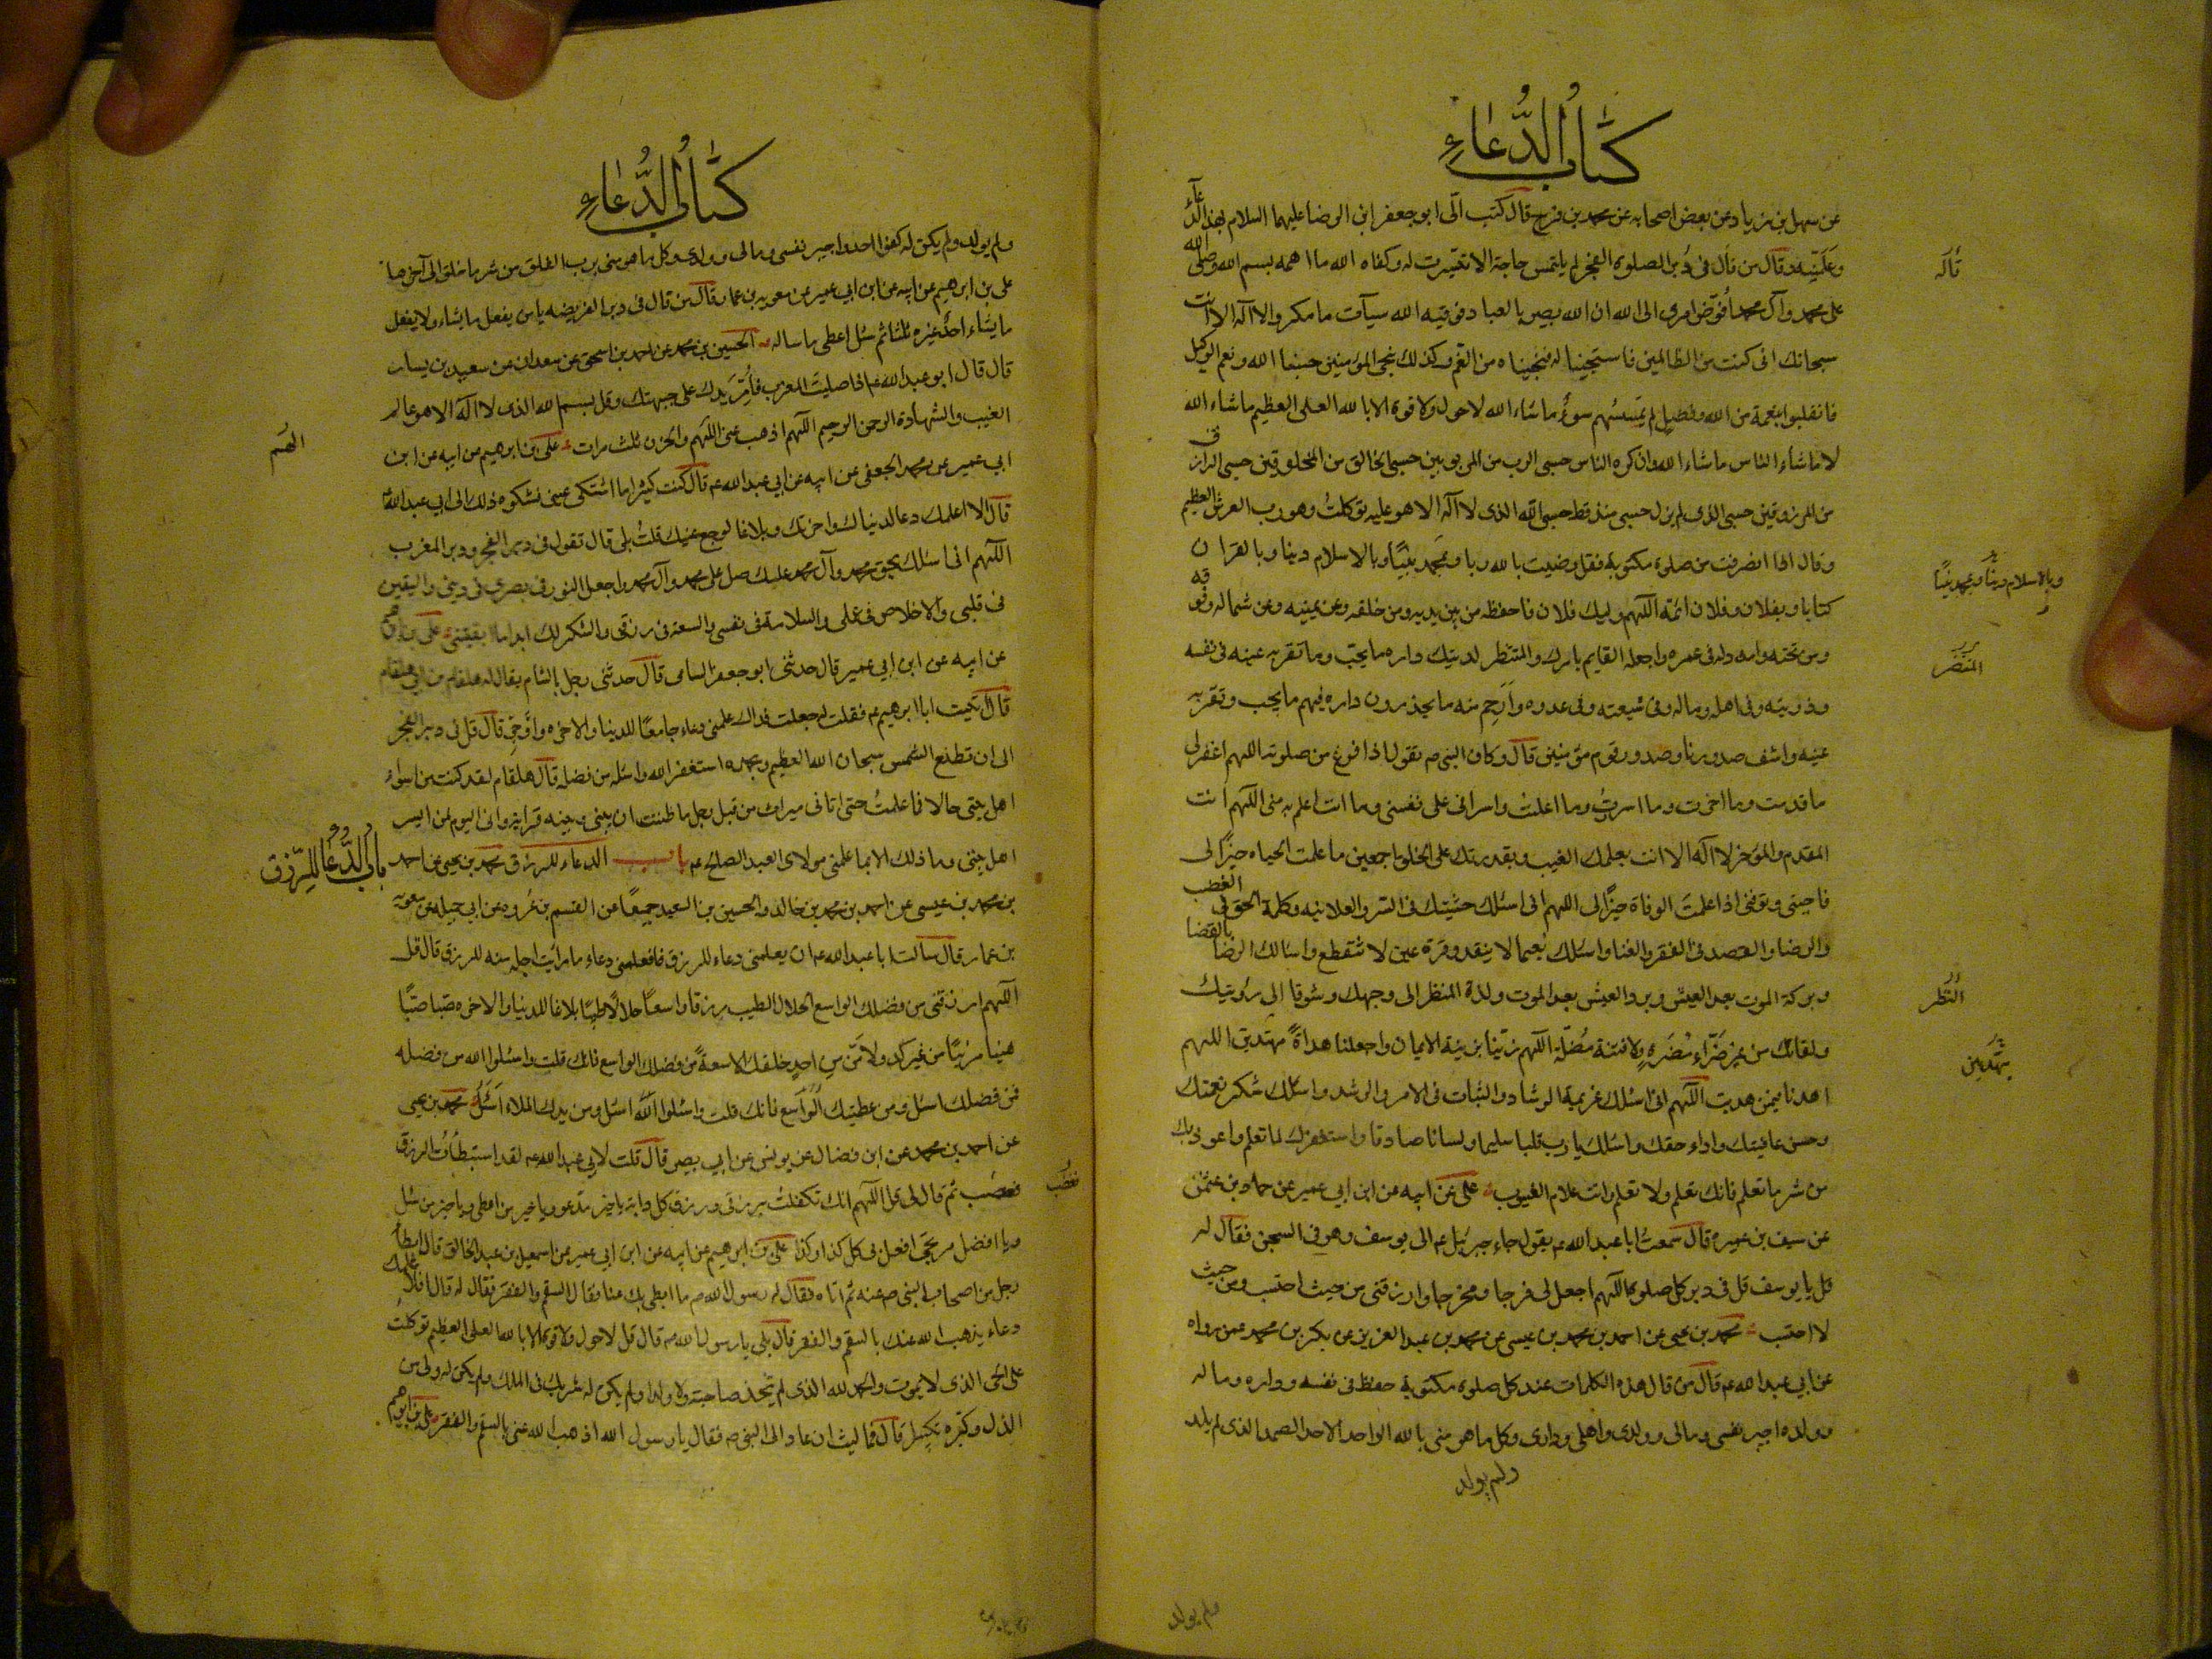 كتاب الدعاء
عن سهل بن زياد عن بعض اصحابه عن محمد بن فرج قال كتب الى ابو جعفر ابن الرضا عليهما السلام بهذا الدعاء
وعلّنيه وقال من قال فى دبر الصلوة الفجر لم يلتمس حاجة الا تيسرت له وكفاه الله ما اهمه بسم الله وصلى الله
قاله
على محمد وآل محمد افوّض امرى الى الله ان الله بصير بالعباد فوقيه الله سيآت ما مكروا لا اله الا انت
سبحانك انى كنت من الظالمين فاستجبنا له فنجيناه من الغم وكذلك ننجى المؤمنين حسبنا الله ونعم الوكيل
فانقلبوا بنعمة من الله وفضل لم يمسسهم سوء ما شاء الله لا حول ولا قوة الا بالله العلى العظيم ما شاء الله
لا ما شاء الناس ما شاء الله وان كره الناس حسبى الرب من المربوبين حسبى الخالق من المخلوقين حسبى الرازق
من المرزوقين حسبى الذى لم يزل حسبى منذ قط حسبى الله الذى لا اله الا هو عليه توكلت وهو رب العرش العظيم
وقال اذا انصرفت من صلوة مكتوبة فقل رضيت بالله ربا وبمحمد نبيّا وبالاسلام دينا وبالقران
وبالاسلام دينا وبمحمد نبيّا
كتابا وبفلان وفلان ائمّة اللهم وليك فلان فاحفظه من بين يديه ومن خلفه وعن يمينه وعن شماله ومن فوقه
ومن تحته وامدد له فى عمره واجعله القايم بامرك والمنتظر لدينك واره ما يحبّ وما تقر به عينه فى نفسه
المنتصر
وذريته وفى اهله وماله وفى شيعته وفى عدوه وارهم منه ما يحذرون واره فيهم ما يحب وتقر به
عينه واشف صدورنا وصدور قوم مؤمنين قال وكان النبى ص يقول اذا فرغ من صلوته اللهم اغفر لى
ما قدمت وما اخرت وما اسررت وما اعلنت واسرافى على نفسى وما انت اعلم به منى اللهم انت
المقدم والمؤخر لا اله الا انت بعلمك الغيب وبقدرتك على الخلق اجمعين ما علمت الحياه خيرًا لى
فاحينى وتوفنى اذا علمت الوفاة خيرًا لى اللهم انى اسئلك خشيتك فى السر والعلانيه وكلمة الحق فى الغضب
والرضا والقصد فى الفقر والغنا واسئلك نعيما لا ينفد وقرة عين لا تنقطع واسالك الرضا بالقضا
وبركة الموت بعد العيش وبرد العيش بعد الموت ولذة المنظر الى وجهك وشوقا الى رؤيتك
النّظر
ولقائك من غير ضرّاء مضرة ولا فتنة مضلّة اللهم زيّنا بزينة الايمان واجعلنا هداةً مهتدين اللهم
مهتدين
اهدنا فيمن هديت اللهم انى اسئلك عزيمة الرشاد والثبات فى الامر والرشد واسئلك شكر نعمتك
وحسن عافيتك واداء حقك واسئلك يا رب قلبا سليما ولسانا صادقا واستغفرك لما تعلم واعوذ بك
من شر ما تعلم فانك تعلم ولا نعلم وانت علام الغيوب على عن ابيه عن ابن ابي عمير عن حماد بن عثمن
عن سيف بن عميره قال سمعت ابا عبد الله ع يقول جاء جبرئيل ع الى يوسف وهو فى السجن فقال له
قل يا يوسف قل فى دبر كل صلوة اللهم اجعل لى فرجا ومخرجا وارزقنى من حيث احتسب ومن حيث
لا احتسب محمد بن يحيى عن احمد بن محمد بن عيسى عن محمد بن عبد العزيز عن بكر بن محمد عمن رواه
عن ابي عبد الله ع قال من قال هذه الكلمات عند كل صلوة مكتوبة حفظ فى نفسه وداره وماله
وولده اجير نفسى ومالى وولدى واهلى ودارى وكل ما هو منى بالله الواحد الاحد الصمد الذى لم يلد
ولم يولد
ولم يولد
كتاب الدعاء
ولم يولد ولم يكن له كفوا احد واجير نفسى ومالى وولدى وكل ما هو منى برب الفلق من شر ما خلق الى آخرها
على بن ابرهيم عن ابيه عن ابن ابي عمير عن معويه بن عمار قال من قال فى دبر الفريضه يا من يفعل ما يشاء ولا يفعل
ما يشاء احدٌ غيره ثلثا ثم سئل اعطى ما ساله الحسين بن محمد عن احمد بن اسحق عن سعدان عن سعيد بن يسار
قال قال ابو عبد الله ع اذا صليت المغرب فأمرّ يدك على جبهتك وقل بسم الله الذى لا اله الا هو عالم
الغيب والشهادة الرحمن الرحيم اللهم اذهب عنى اللهم والحزن ثلث مرات على بن ابرهيم عن ابيه عن ابن
الهم
ابي عمير عن محمد الجعفى عن ابيه عن ابي عبد الله ع قال كنت كثيرا ما اشتكى عينى فشكوت ذلك الى ابي عبد الله
قال الا اعلمك دعا لدنياك واخرتك وبلاغا لوجع عينك قلت بلى قال تقول فى دبر الفجر ودبر المغرب
اللهم انى اسئلك بحق محمد وآل محمد عليك صل على محمد وآل محمد واجعل النور فى بصرى فى دينى واليقين
فى قلبى والاخلاص فى عملى والسلامة فى نفسى والسعة فى رزقى والشكر لك ابدا ما ابقيتنى على بن ابرهيم
عن ابيه عن ابن ابي عمير قال حدثنى ابو جعفر الشامى قال حدثنى رجل بالشام يقال له هلقام بن ابي هلقام
قال اتيت ابا ابرهيم ع فقلت له جعلت فداك علمنى دعاء جامعًا للدنيا والاخره واوجز قال قل فى دبر الفجر
الى ان تطلع الشمس سبحان الله العظيم وبحمده استغفر الله واسئله من فضله قال هلقام لقد كنت من اسوء
اهل بيتى حالا فما علمت حتى اتانى ميراث من قبل رجل ما ظننت ان بينى وبينه قرابة وانى اليوم لمن ايسر
اهل بيتى وما ذلك الا بما علمنى مولاى العبد الصالح ع باب الدعاء للرزق محمد بن يحيى عن احمد
باب الدعا للرزق
بن محمد بن عيسى عن احمد بن محمد بن خالد والحسين بن السعيد جميعًا عن القسم بن عروه عن ابي جميله عن معويه
بن عمار قال سالت ابا عبد الله ع ان يعلمنى دعاء للرزق فعلمنى دعاء ما رأيت اجلب منه للرزق قال قل
اللهم ارزقنى من فضلك الواسع الحلال الطيب رزقا واسعًا حلالًا طيبًا بلاغا للدنيا والاخره صبّا صبّا
هنيا مريئًا من غير كد ولا منّ من احدٍ خلقك الا سعةً من فضلك الواسع فانك قلت واسئلوا الله من فضله
فمن فضلك اسئل ومن عطيتك الواسع فانك قلت واسئلوا الله اسئل ومن يدك الملاء اسئل محمد بن يحيى
عن احمد بن محمد عن ابن فضال عن يونس عن ابي بصير قال قلت لابي عبد الله ع لقد استبطأت الرزق
فغضب ثم قال لى قل اللهم انك تكفلت برزقى ورزق كل دابة يا خير مدعو ويا خير من اعطى ويا خير من سئل
فغضب
ويا افضل مرتجى افعل بى كل كذا وكذا على بن ابرهيم عن ابيه عن ابن ابي عمير عن اسمعيل بن عبد الخالق قال ابطأ
رجل من اصحاب النبى ص عنه ثم اتاه فقال له رسول الله ص ما ابطى بك عنا فقال السقم والفقر فقال له قال افلا اعلمك
دعاء يذهب الله عنك بالسقم والفقر قال بلى يا رسول الله ص قال قل لا حول ولا قوة الا بالله العلى العظيم توكلت
على الحى الذى لا يموت والحمد لله الذى لم يتخذ صاحبة ولا ولدا ولم يكن له شريك فى الملك ولم يكن له ولى من
الذل وكبّره تكبيرا قال فما لبث ان عاد الى النبى ص فقال يا رسول الله اذهب الله عنى السقم والفقر على بن ابرهيم